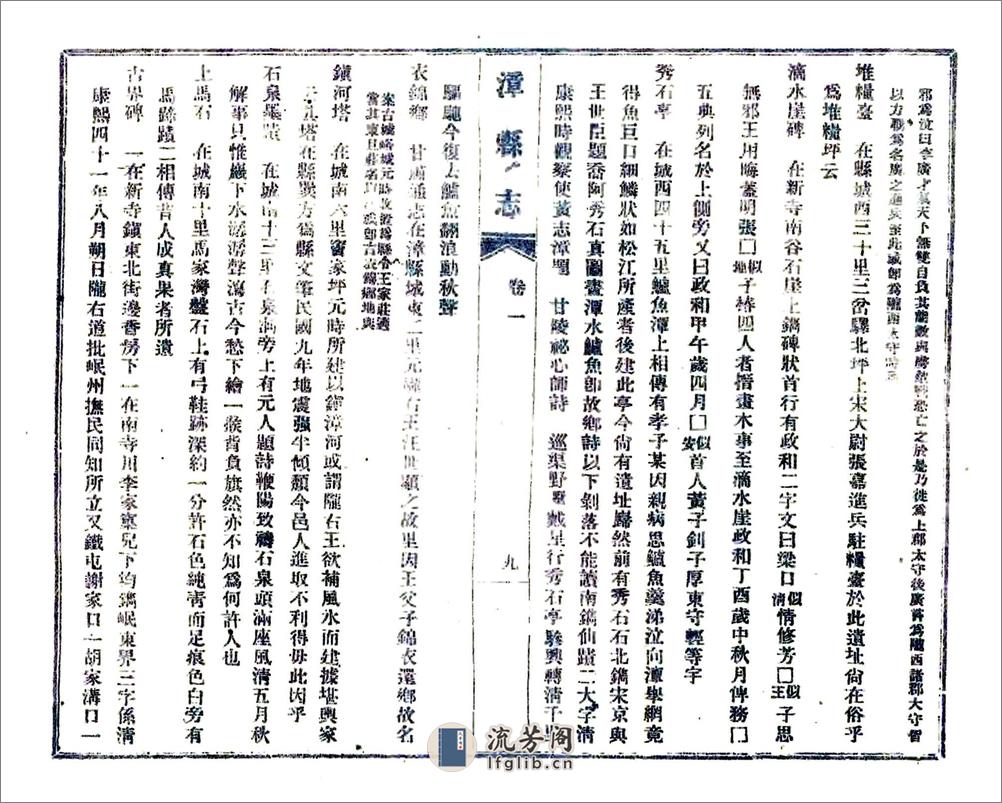 邪為泣曰李廣才氣天下無雙自負其能數與虜敵戰恐亡之於是乃徙為上郡太守後廣轉為隴西諸郡大守皆
以力戰為名廣之進兵至此城卽為隴西太守時
堆糧臺 在縣城西三十里三岔驛北坪上宋大尉張嘉進兵駐糧臺於此遺址尙在俗乎
為堆糧坪云
滴水崖碑 在新寺南谷石崖上鐫碑狀首行有政和二字文曰梁口似清情修芳口似王子思
無邪王用晦蓋明張口似地子椿四人者搢畫水事至滴水崖政和丁酉歲中秋月俾務口
五典列名於上側旁又曰政和甲午歲四月口似安首人黃子釗子厚東守輕等字
秀石亭 在城西四十五里鱸魚潭上相傳有孝子某因親病思鱸魚羹涕泣向潭舉網竟
得魚巨口細鱗狀如松江所產者後建此亭今尙有遺址巋然前有秀石石北鐫宋京與
王世臣題喬阿秀石真圖畫潭水鱸魚卽故鄉詩以下剝落不能讀南鐫仙蹟二大字清
康熙時觀察使黃志漳題 甘陵祕心師詩 巡渠野墅戴星行秀石亭驂興轉淸千里
漳縣志 卷一 九
驅馳今復去鱸魚翻浪動秋聲
衣錦鄉 甘肅通志在漳縣城東二里元隴右王汪世顯之故里因王父子錦衣還鄉故名
案古城峪城元時改置為縣今王家莊適
當其東且莊名
鎮河塔 在城南六里竇家坪元時所建以鎮漳河或謂隴右王欲補風水而建據堪輿家
云其塔在縣巽方為縣文筆民國九年地震强半傾頹今邑人進取不利得毋此因乎
石泉墨蹟 在城南十三里石泉洞旁上有元人題詩鞭陽致禱石泉頭滿座風清五月秋
解事貝惟巖下水潺潺聲瀉古今愁下繪一猴背負旗然亦不知為何許人也
上馬石 在城南十里馬家灣盤石上有弓鞋跡深約一分許石色純靑而足痕色白旁有
馬蹄蹟二相傳昔人成真果者所遺
古界碑 一在新寺鎮東北街邊香房下一在南寺川李家窠兒下均鐫岷東界三字係清
康熙四十一年八月朔日隴右道批岷州撫民同知所立又鐵屯謝家口一胡家溝口一
流芳阁
lfglib.cn